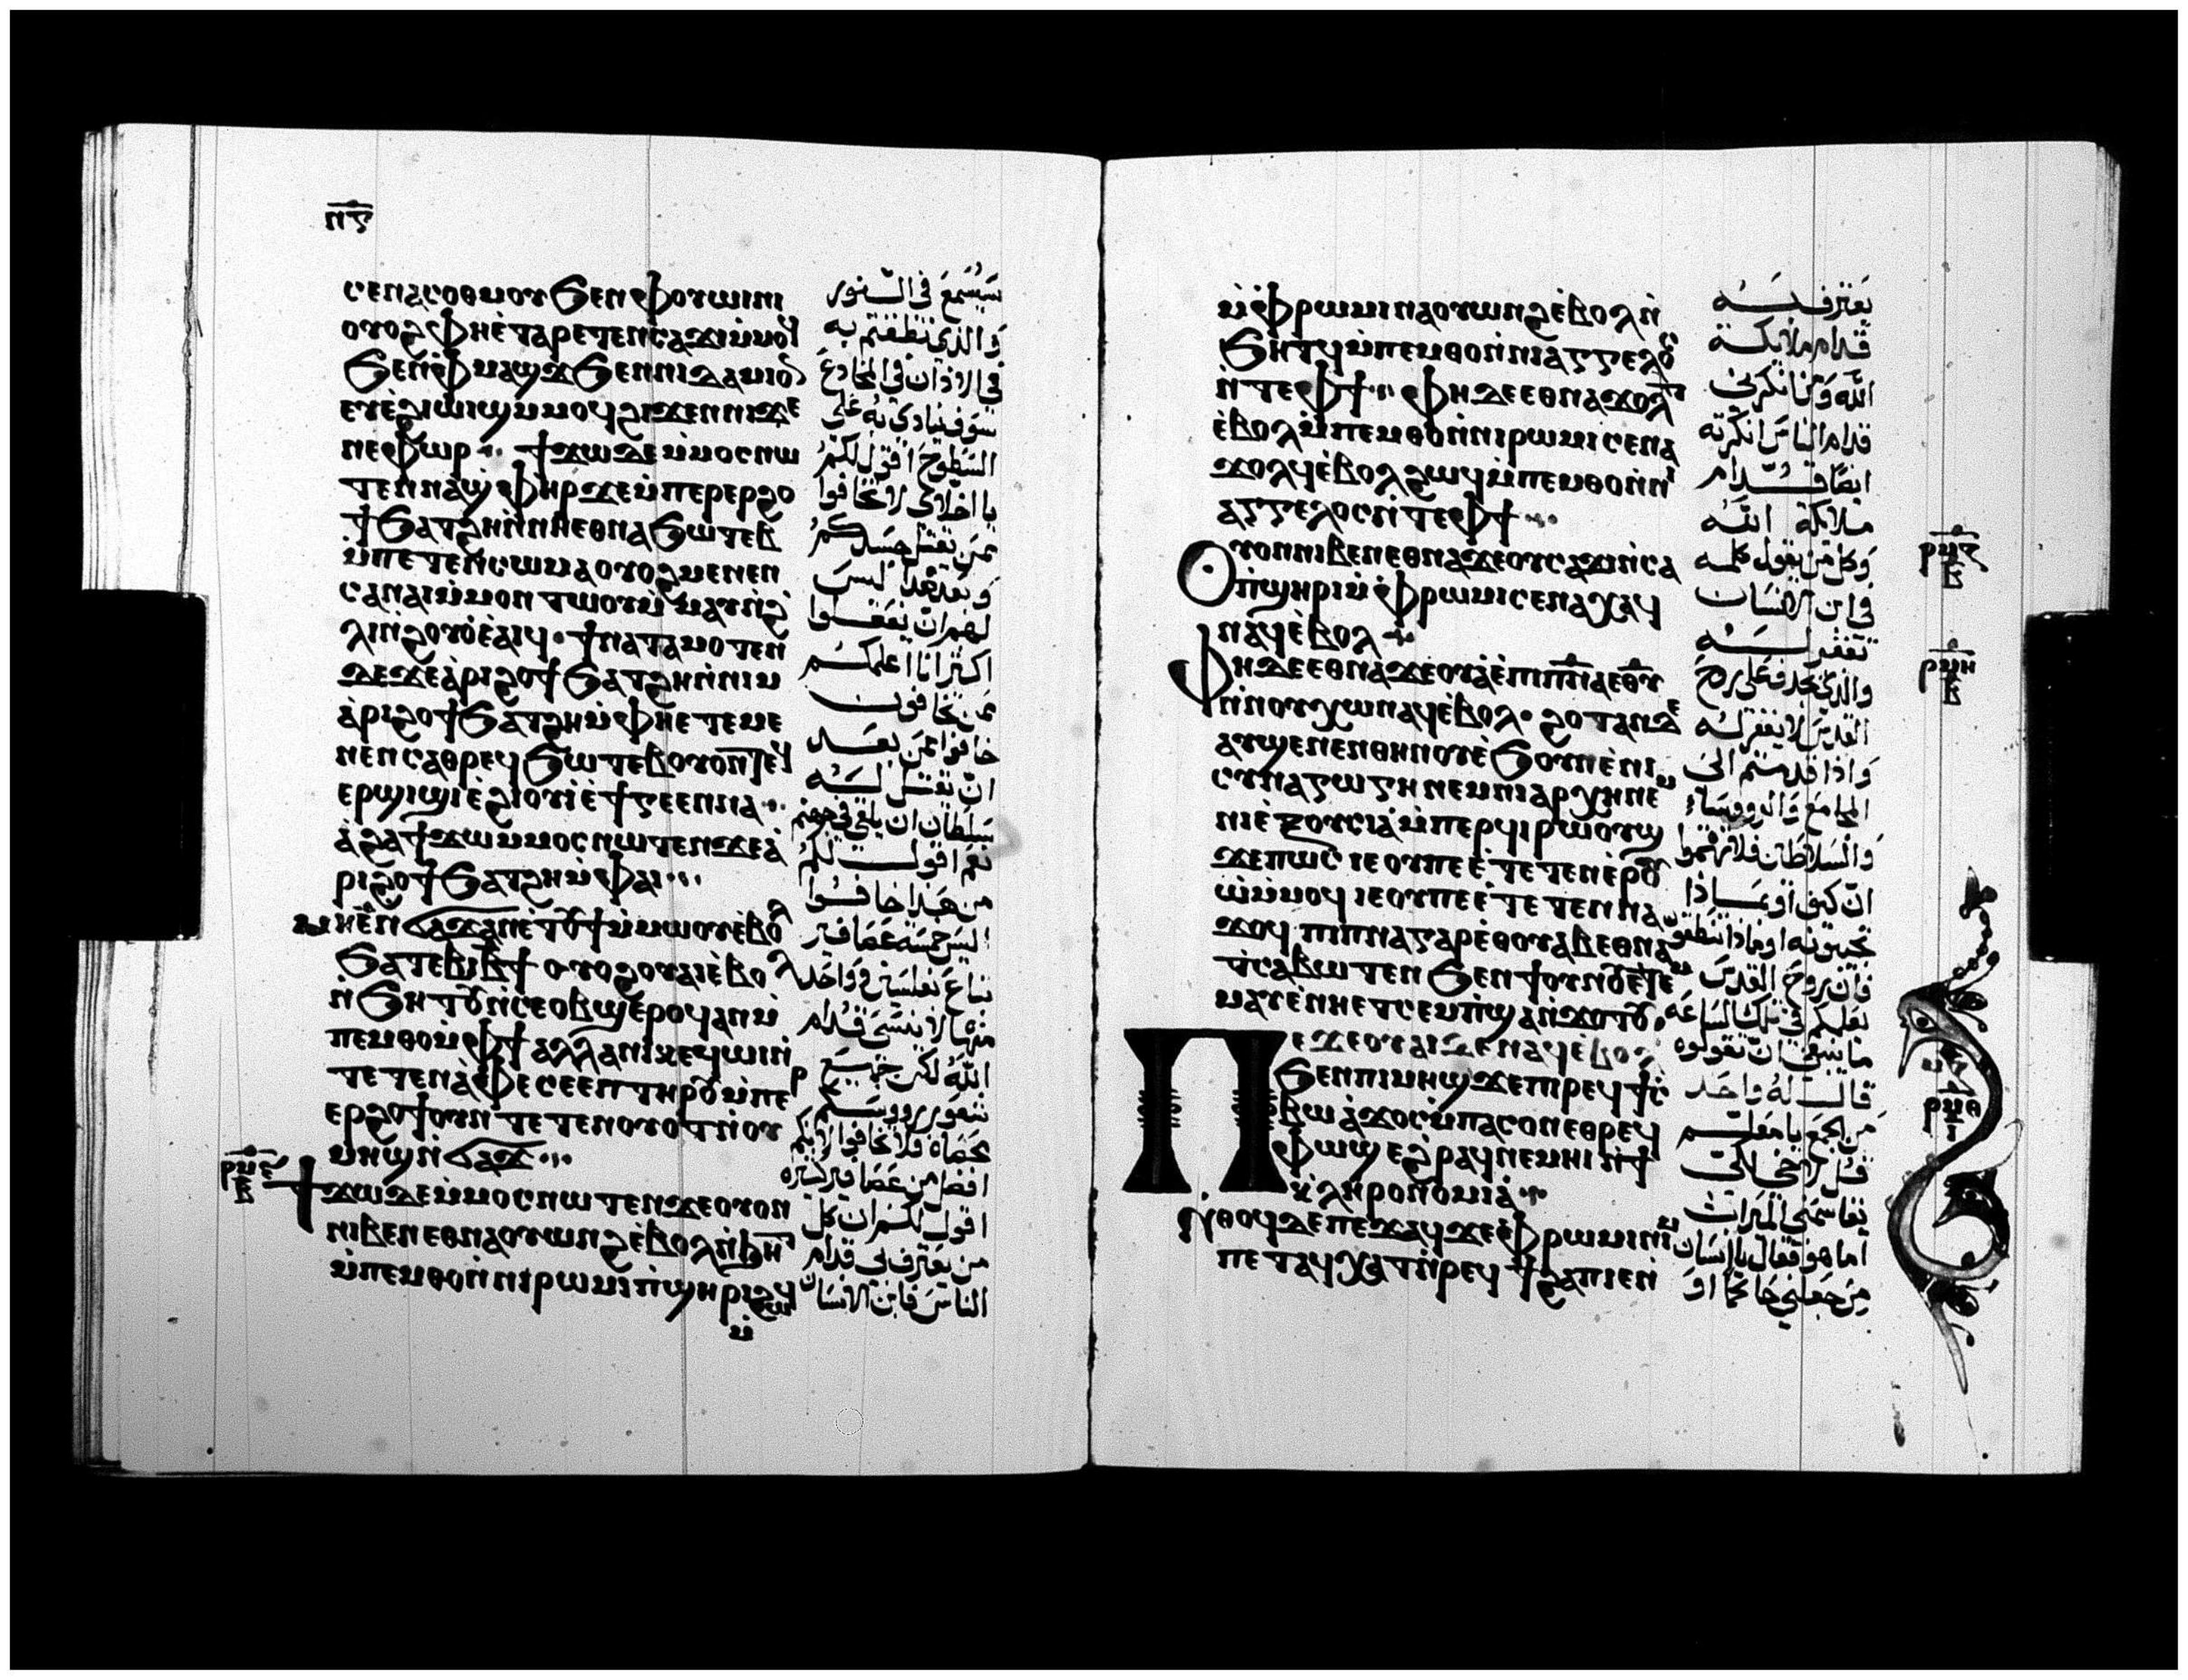 ⲡ̅ⲋ̅
ⲥⲉⲛⲁⲥⲟⲑⲙⲟⲩ ϧⲉⲛ ⲫⲟⲩⲱⲓⲛⲓ
ⲟⲩⲟϩ ⲫⲏⲉ̀ⲧⲁⲣⲉⲧⲉⲛⲥⲁϫⲓ ⲙ̀ⲙⲟϥ
ϧⲉⲛ ⲫ̀ⲙⲁϣϫ ϧⲉⲛ ⲛⲓⲧⲁⲙⲓⲟⲛ
ⲉⲩⲉ̀ϩⲓⲱⲓϣ ⲙ̀ⲙⲟϥ ϩⲓϫⲉⲛ ⲛⲓϫⲉ
ⲛⲉⲫⲱⲣ ϯϫⲱ ⲇⲉ ⲙ̀ⲙⲟⲥ ⲛⲱ
ⲧⲉⲛ ⲛⲁϣⲫⲏⲣ ϫⲉ ⲙ̀ⲡⲉⲣⲉⲣϩⲟ
ϯ ϧⲁⲧϩⲏ ⲛ̀ⲛⲏⲉⲑⲛⲁϧⲱⲧⲉⲃ
ⲙ̀ⲡⲉⲧⲉⲛⲥⲱⲙⲁ ⲟⲩⲟϩ ⲙⲉⲛⲉⲛ
ⲥⲁⲛⲁⲓ ⲙ̀ⲙⲟⲛ ⲧⲱⲟⲩ ⲙ̀ⲙⲁⲩ ⲛ̀ϩ
ⲗⲓ ⲛ̀ϩⲟⲩⲟ̀ ⲉ̀ⲁⲓϥ ϯⲛⲁⲧⲁⲙⲟⲧⲉⲛ
ⲇⲉ ϫⲉ ⲁ̀ⲣⲓϩⲟϯ ϧⲁⲧϩⲏ ⲛ̀ⲛⲓⲙ
ⲁ̀ⲣⲓϩⲟϯ ϧⲁⲧϩⲏ ⲙ̀ⲫⲏⲉⲧⲉ ⲙⲉ
ⲛⲉⲛⲥⲁⲑⲣⲉϥϧⲱⲧⲉⲃ ⲟⲩⲟⲛⲧⲉϥ
ⲉⲣϣⲓϣⲓ ⲉ̀ϩⲓⲟⲩⲓ ⲉ̀ϯⲅⲉⲉⲛⲛⲁ
ⲁ̀ϩⲁ ϯϫⲱ ⲙ̀ⲙⲟⲥ ⲛⲱⲧⲉⲛ ϫⲉ ⲁ̀
ⲣⲓϩⲟϯ ϧⲁⲧϩⲏ ⲙ̀ⲫⲁⲓ
ⲙⲏ ⲉ̄ ⲛ̀ϭⲁϫ ⲁⲛ ⲉⲧⲟⲩϯ ⲙ̀ⲙⲱⲟⲩ ⲉ̀ⲃⲟⲗ
ϧⲁ ⲧⲉⲃⲓ ⲃ̄ϯ ⲟⲩⲟϩ ⲟⲩⲁⲓ ⲉ̀ⲃⲟⲗ
ⲛ̀ϧⲏⲧⲟⲩ ⲛ̀ⲥⲉⲟⲃϣ ⲉ̀ⲣⲟϥ ⲁⲛ ⲙ̀
ⲡⲉⲙⲑⲟ ⲙ̀ⲫϯ ⲁⲗⲗⲁ ⲛⲓⲕⲉϥⲱⲓ ⲛ̀
ⲧⲉ ⲧⲉⲛⲁ̀ⲫⲉ ⲥⲉⲏⲡ ⲧⲏⲣⲟⲩ ⲙ̀ⲡⲉⲣ
ⲉⲣϩⲟϯ ⲟⲩⲛ ⲧⲉⲧⲉⲛⲟⲩⲟⲧ ⲛ̀ⲟⲩ
ⲙⲏϣ ⲛ̀ϭⲁϫ
ⲣ̅ⲙ̅ⲋ̅
ⲃ
ϯϫⲱ ⲇⲉ ⲙ̀ⲙⲟⲥ ⲛⲱⲧⲉⲛ ϫⲉ ⲟⲩⲟⲛ
ⲛⲓⲃⲉⲛ ⲉⲑⲛⲁⲟⲩⲱⲛϩ ⲉ̀ⲃⲟⲗ ⲛ̀ϧⲏⲧ
ⲙ̀ⲡⲉⲙⲑⲟ ⲛ̀ⲛⲓⲣⲱⲙⲓ ⲡ̀ϣⲏⲣⲓ ϩⲱϥ
ⲙ̀
سيُسمع في النور
والذي نطقتم به
في الاذان في المخادع
سوف ينادى به على
السطوح اقول لكم
يا اخلاي لا تخافوا
ممن يقتل جسدكم
وبعد هذا ليس
لهم ان يفعلوا
اكثر انا اعلمكم
ممن تخافون
خافوا ممن بعد
ان يقتل له
سلطان ان يلقي في جهنم
نعم اقول لكم
من هذا خافوا
اليس خمسة عصافير
تباع بفلسين وواحد
منها لا ينسى قدام
الله لكن جميع
شعور رووسكم
محصاه فلا تخافوا لانكم
افضل من عصافير كثيره
اقول لكم ان كل
من يعترف بي قدام
الناس فابن الانسان
ⲙ̀ⲫ̀ⲣⲱⲙⲓ ⲛⲁⲟⲩⲱⲛϩ ⲉ̀ⲃⲟⲗ ⲛ̀
ϧⲏⲧϥ ⲙ̀ⲡⲉⲙⲑⲟ ⲛ̀ⲛⲓⲁⲅⲅⲉⲗⲟⲥ
ⲛ̀ⲧⲉ ⲫϯ ⲫⲏ ⲇⲉ ⲉⲑⲛⲁϫⲟⲗⲧ
ⲉ̀ⲃⲟⲗ ⲙ̀ⲡⲉⲙⲑⲟ ⲛ̀ⲛⲓⲣⲱⲙⲓ ⲥⲉⲛⲁ
ϫⲟⲗϥ ⲉ̀ⲃⲟⲗ ϩⲱϥ ⲙ̀ⲡⲉⲙⲑⲟ ⲛ̀ⲛⲓ
ⲁⲅⲅⲉⲗⲟⲥ ⲛ̀ⲧⲉ ⲫϯ
ⲟⲩⲟⲛ ⲛⲓⲃⲉⲛ ⲉⲑⲛⲁϫⲉ ⲟⲩⲥⲁϫⲓ ⲛ̀ⲥⲁ
ⲡ̀ϣⲏⲣⲓ ⲙ̀ⲫ̀ⲣⲱⲙⲓ ⲥⲉⲛⲁⲭⲁϥ
ⲛⲁϥ ⲉ̀ⲃⲟⲗ
ⲫⲏ ⲇⲉ ⲉⲑⲛⲁϫⲉⲟⲩⲁ̀ ⲉ̀ⲡⲓⲡ̅ⲛ̅ⲁ̅ ⲉ̅ⲑ̅ⲩ̅
ⲛ̀ⲛⲟⲩⲭⲱ ⲛⲁϥ ⲉ̀ⲃⲟⲗ ϩⲟⲧⲁⲛ ⲇⲉ
ⲁⲩϣⲁⲛⲉⲛ ⲑⲏⲛⲟⲩ ⲉ̀ϧⲟⲩⲛ ⲉ̀ⲛⲓ
ⲥⲩⲛⲁⲅⲱⲅⲏ ⲛⲉⲙ ⲛⲓⲁⲣⲭⲏ ⲛⲉⲙ
ⲛⲓⲉ̀ⲝⲟⲩⲥⲓⲁ̀ ⲙ̀ⲡⲉⲣϥⲓⲣⲱⲟⲩϣ
ϫⲉ ⲡⲱⲥ ⲓⲉ ⲟⲩ ⲡⲉ ⲉ̀ⲧⲉⲧⲉⲛⲉ̀ⲣⲟⲩ
ⲱ̀ ⲙ̀ⲙⲟϥ ⲓⲉ ⲟⲩ ⲡⲉ ⲉ̀ⲧⲉⲧⲉⲛⲛⲁ
ϫⲟϥ ⲡⲓⲡⲛⲁ ⲅⲁⲣ ⲉ̀ⲑⲟⲩⲁⲃ ⲉⲑⲛⲁ
ⲧ̀ⲥⲁⲃⲱⲧⲉⲛ ϧⲉⲛ ϯⲟⲩⲛⲟⲩ ⲉ̀ⲧⲉ ⲙ̀
ⲙⲁⲩ ⲉ̀ⲛⲏⲉⲧⲥⲉⲙⲡ̀ϣⲁ ⲛ̀ϫⲟⲧⲟⲩ
ⲡⲉϫⲉ ⲟⲩⲁⲓ ⲇⲉ ⲛⲁϥ ⲉ̀ⲃⲟⲗ
ϧⲉⲛ ⲡⲓⲙⲏϣ ϫⲉ ⲡⲓⲣⲉϥϯⲥ̀
ⲃⲱ ⲁ̀ϫⲟⲥ ⲙ̀ⲡⲁⲥⲟⲛ ⲉⲑⲣⲉϥ
ⲫⲱϣ ⲉϩⲣⲁϥ ⲛⲉⲙⲏⲓ ⲛ̀ϯ
ⲕ̀ⲗⲏⲣⲟⲛⲟⲙⲓⲁ̀
ⲛ̀ⲑⲟϥ ⲇⲉ ⲡⲉϫⲁϥ ϫⲉ ⲫ̀ⲣⲱⲙⲓ ⲛⲓⲙ
ⲡⲉⲧⲁϥⲭⲁⲧ ⲛ̀ⲣⲉϥϯϩⲁⲡ ⲓⲉⲛ
يعترف به
قدام ملايكة
الله ومن انكرني
قدام الناس انكرته
ايضا قدام
ملايكة الله
وكل من يقول كلمه
في ابن الانسان
تغفر له
والذي يجدف على روح
القدس لا يغفر له
واذا قدمتم الى
المجامع والرووساء
والسلاطين فلا تهتموا
ان كيف او بماذا
تجيبون او ماذا تنطقون
فان روح القدس
يعلمكم في تلك الساعه
ما ينبغي ان تقولوه
قال له واحد
من الجمع يا معلم
قل لاخي
يقاسمني الميراث
اما هو فقال يا انسان
من جعلني حاكما او
ⲣ̅ⲙ̅ⲍ̅
ⲃ
ⲣ̅ⲙ̅ⲏ̅
ⲃ
ⲣ̅ⲙ̅ⲑ̅
ⲓ